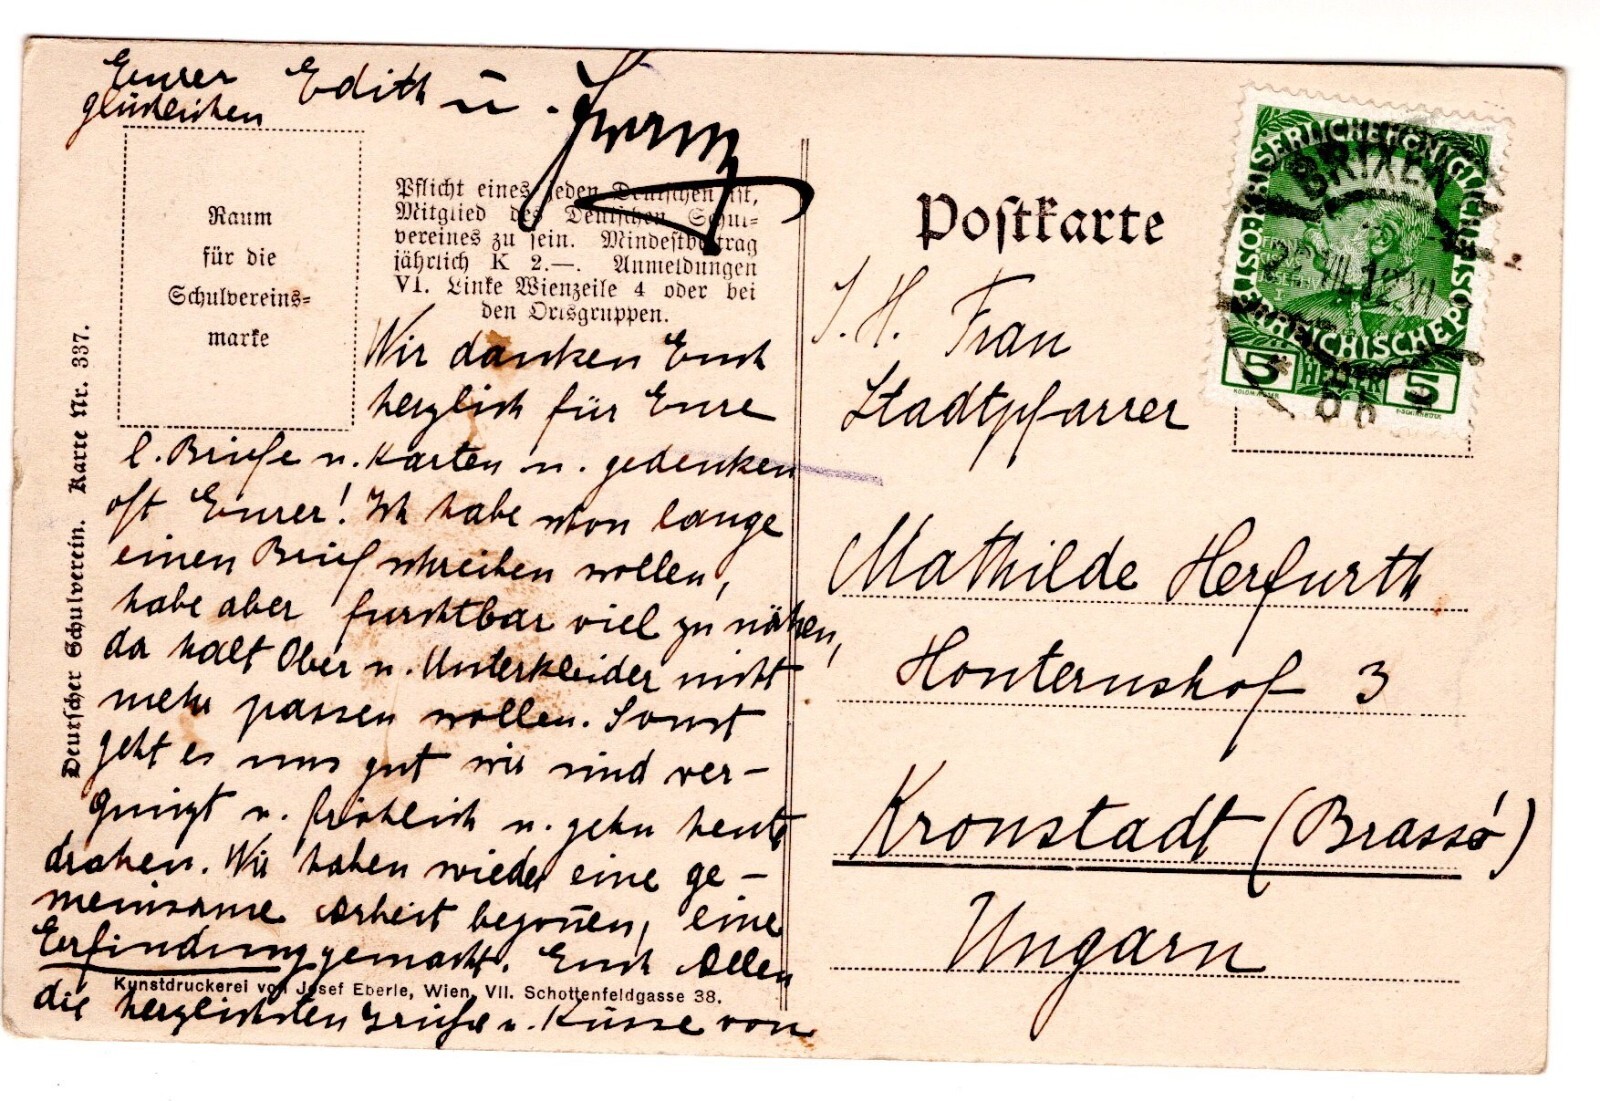 Wir danken Euch
herzlich für Eure
l. Briefe u. Karten u. gedenken
oft Eurer! Ich habe schon lange
einen Brief schreiben wollen,
habe aber furchtbar viel zu nähen,
da halt Ober u. Unterkleider nicht
mehr passen wollen. Sonst
geht es uns gut wir sind ver-
gnügt u. fröhlich u. gehn heute
drahen. Wir haben wieder eine ge-
meinsame Arbeit begon̄en, eine
Erfindung gemacht. Euch Allen
die herzlichsten Grüße u. Küsse von
Eurer
glücklichen Edith u.
Raum
für die
Schulvereins=
marke
Pflicht eines jeden Deutschen ist,
Mitglied des Deutschen Schul=
vereines zu sein. Mindestbeitrag
jährlich K 2.—. Anmeldungen
VI. Linke Wienzeile 4 oder bei
den Ortsgruppen.
Deutscher Schulverein. Karte Nr. 337.
Kunstdruckerei von Josef Eberle, Wien, VII. Schottenfeldgasse 38.
Postkarte
I. H. Frau
Stadtpfarrer
Mathilde Herfurth
Honterushof 3
Kronstadt (Brassó)
Ungarn
KAISERLICHE KÖNIGLICHE ÖSTERREICHISCHE POST
5 HELLER 5
BRIXEN